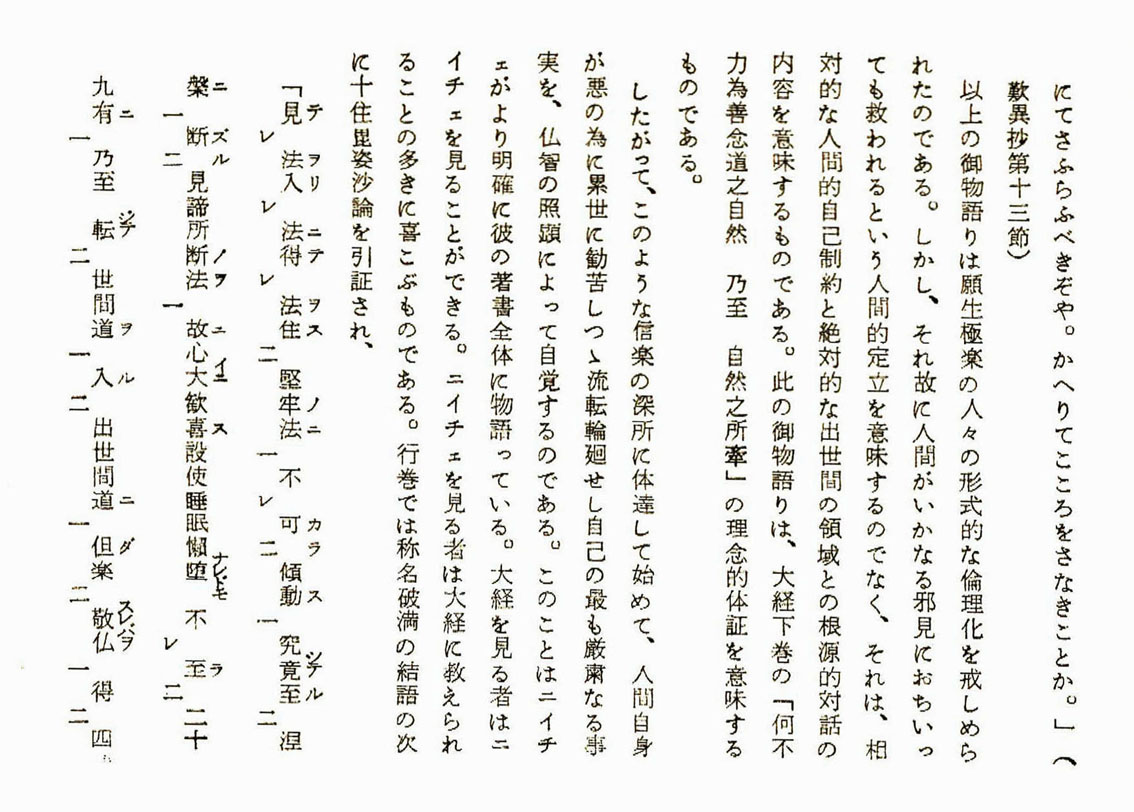 にてさふらふべきぞや。かへりてこころをさなきことか。」（
歎異抄第十三節）
以上の御物語りは願生極楽の人々の形式的な倫理化を戒しめら
れたのである。しかし、それ故に人間がいかなる邪見におちいっ
ても救われるという人間的定立を意味するのでなく、それは、相
対的な人間的自己制約と絶対的な出世間の領域との根源的対話の
内容を意味するものである。此の御物語りは、大経下巻の「何不
力為善念道之自然　乃至　自然之所牽」の理念的体証を意味する
ものである。
したがって、このような信楽の深所に体達して始めて、人間自身
が悪の為に累世に勤苦しつゝ流転輪廻せし自己の最も厳粛なる事
実を、仏智の照顕によって自覚するのである。このことはニイチ
ェがより明確に彼の著書全体に物語っている。大経を見る者はニ
イチェを見ることができる。ニイチェを見る者は大経に教えられ
ることの多きに喜こぶものである。行巻では称名破満の結語の次
に十住毘婆沙論を引証され、
「見テレ法ヲ入リレ法ニ得テレ法ヲ住ス二堅牢ノ法ニ一不レ可カラ二傾動ス一究竟シテ至ル二涅
槃ニ一断ズル二見諦所断ノ法ヲ一故ニ心大イニ歓喜ス設使睡眠懶堕ナレドモ不レ至ラ二二十
九有ニ一乃至　転ジテ二世間道ヲ一入ル二出世間道ニ一但ダ楽二敬仏スレバヲ一得二四